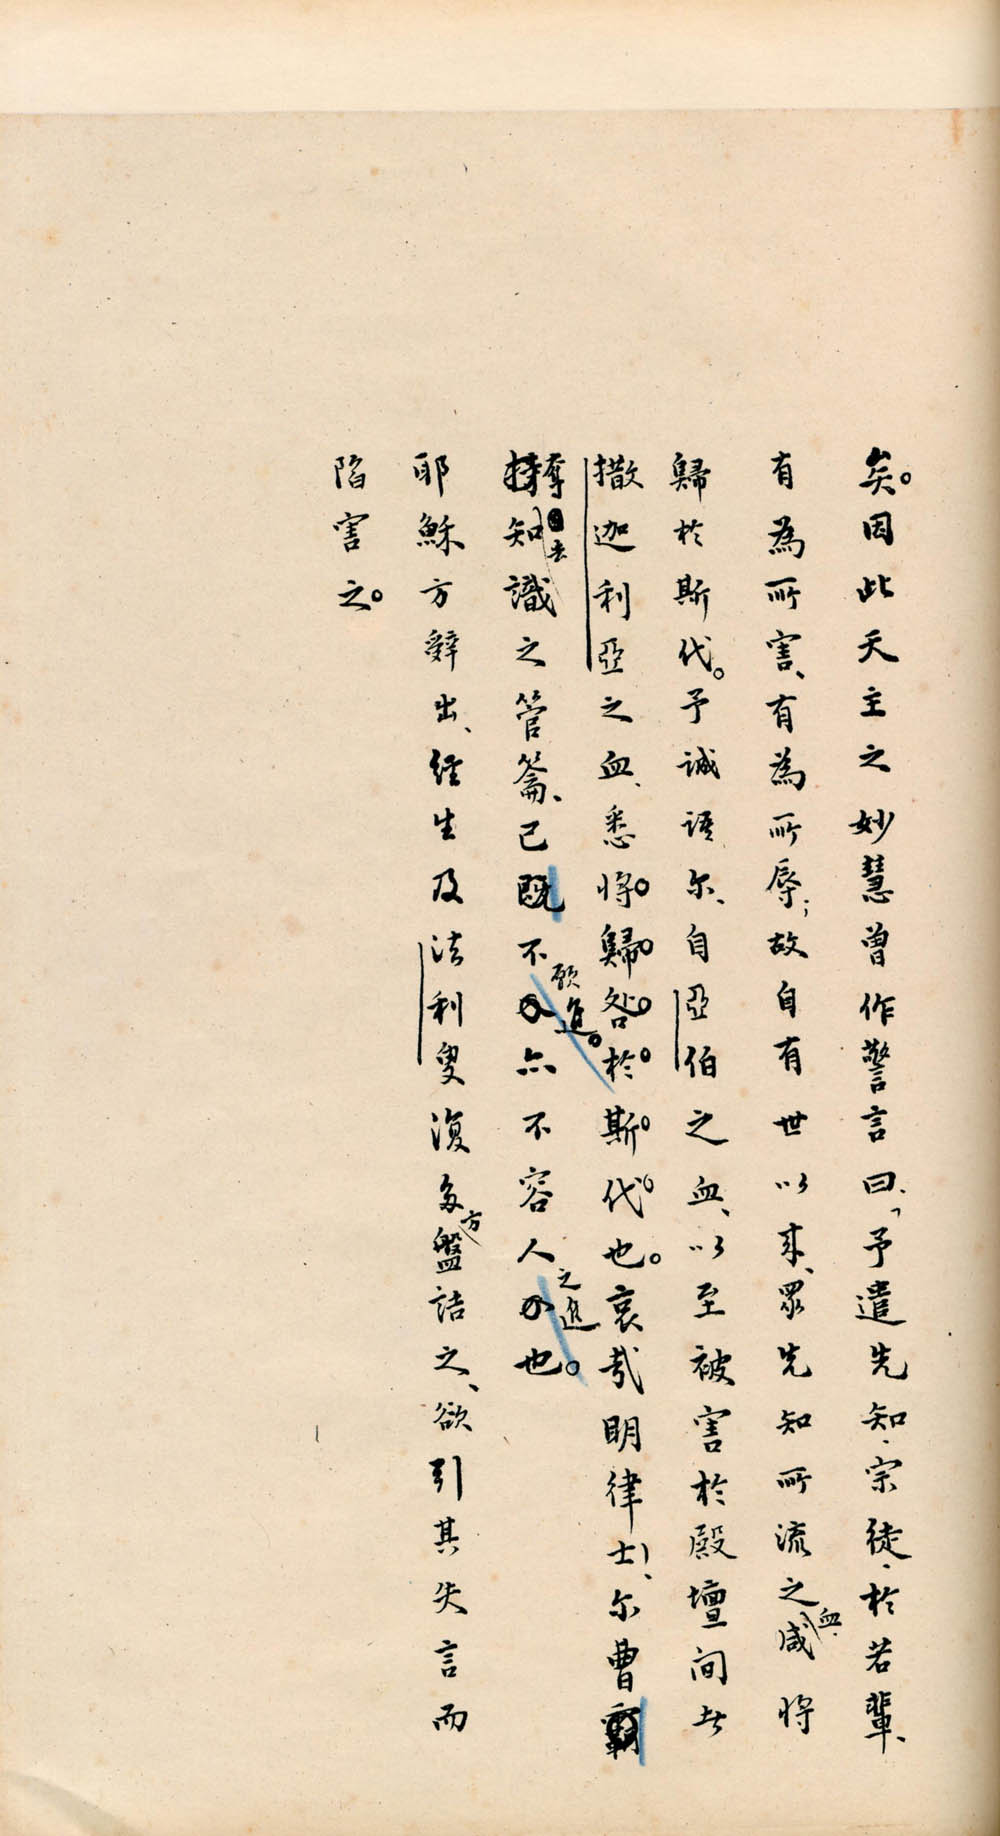 矣。因此天主之妙慧曾作警言曰、「予遣先知、宗徒、於若輩、
有為所害、有為所辱；故自有世以來、眾先知所流之血、咸將
歸於斯代。予誠語尔、自亞伯之血、以至被害於殿壇間者
撒迦利亞之血、悉將歸咎於斯代也。哀哉明律士！、尔曹
奪去知識之管籥、己既不願進。亦不容人之進也。
耶穌方辭出、經生及法利叟復多方盤詰之、欲引其失言而
陷害之。